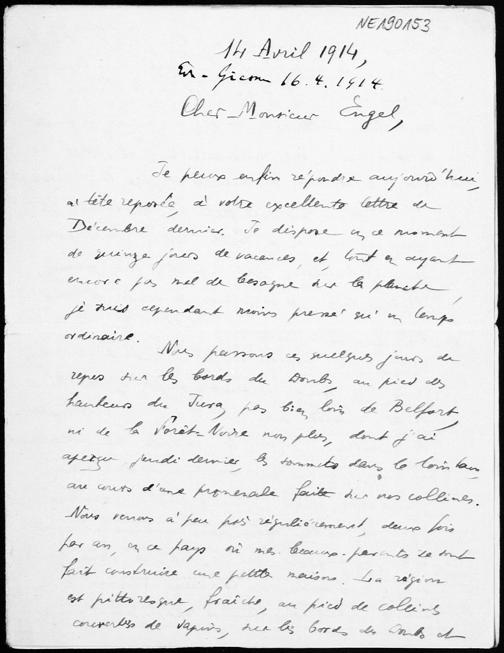 NE190153
14 Avril 1914,
16.4.1914.
Cher Monsieur Engel,
Je peux enfin répondre aujourd'hui,
à tête reposée, à votre excellente lettre de
Décembre dernier. Je dispose en ce moment
de quinze jours de vacances, et, tout en ayant
encore pas mal de besogne sur la planche,
je suis cependant moins pressé qu'en temps
ordinaire.
Nous passons ces quelques jours de
repos sur les bords du Doubs, au pied des
hauteurs du Jura, pas bien loin de Belfort,
ni de la Forêt-Noire non plus, dont j'ai
aperçu, jeudi dernier, les sommets dans le lointain,
au cours d'une promenade faite sur nos collines.
Nous venons à peu près régulièrement, deux fois
par an, en ce pays où mes beaux-parents se sont
fait construire une petite maison. La région
est pittoresque, fraîche, au pied de collines
couvertes de sapins, sur les bords du Doubs et